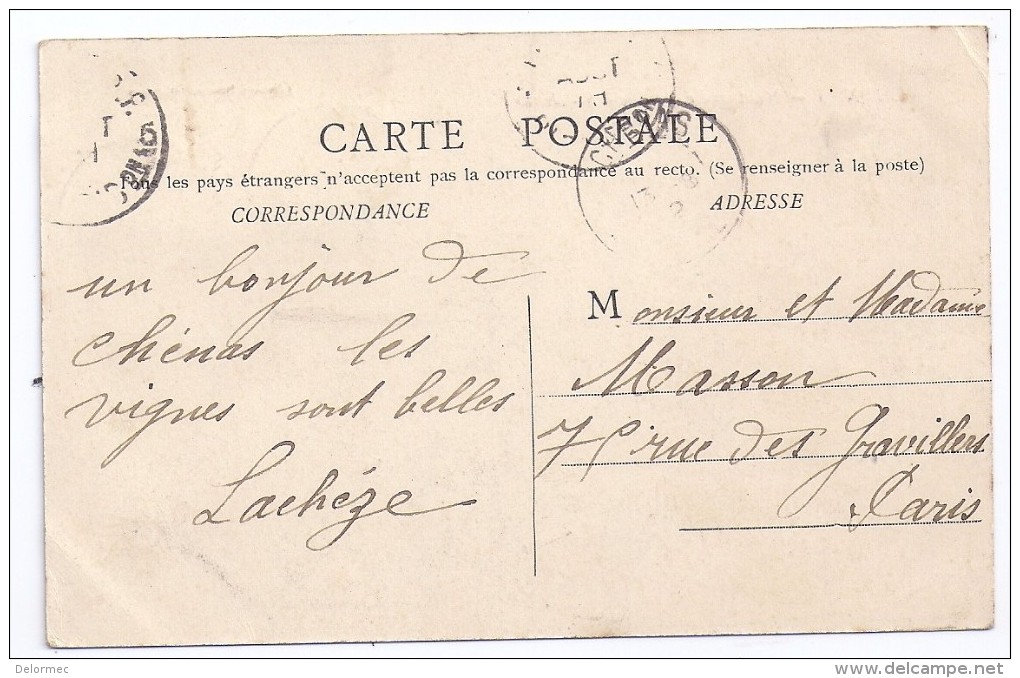 CARTE POSTALE
Tous les pays étrangers n'acceptent pas la correspondance au recto. (Se renseigner à la poste)
CORRESPONDANCE
ADRESSE
un bonjour de
chénas les
vignes sont belles
Lachéze
Monsieur et Madame
Masson
rue des Gravilliers
Paris
Delormec
www.delcampe.net